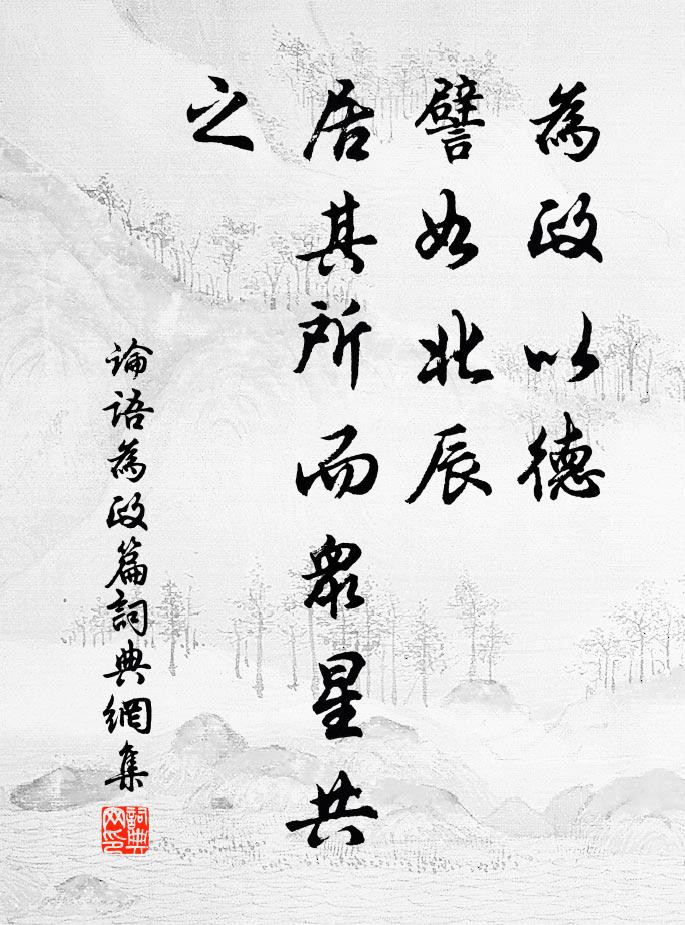 為政以德
譬如北辰
居其所而眾星共
之
論語為政篇詞典網集
詞典
网印